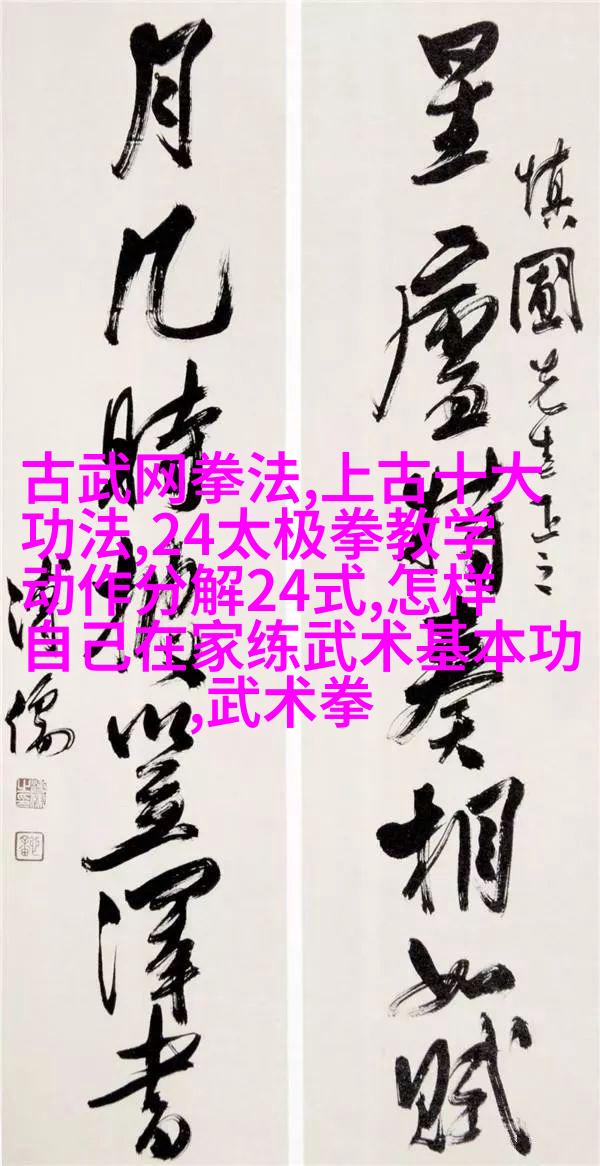 慎圃先生正之
星廬奏相如賦
月几時笠澤書
溥儒
古武网拳法,上古十大
功法,24太极拳教学
动作分解24式,怎样
自己在家练武术基本功
,武术拳